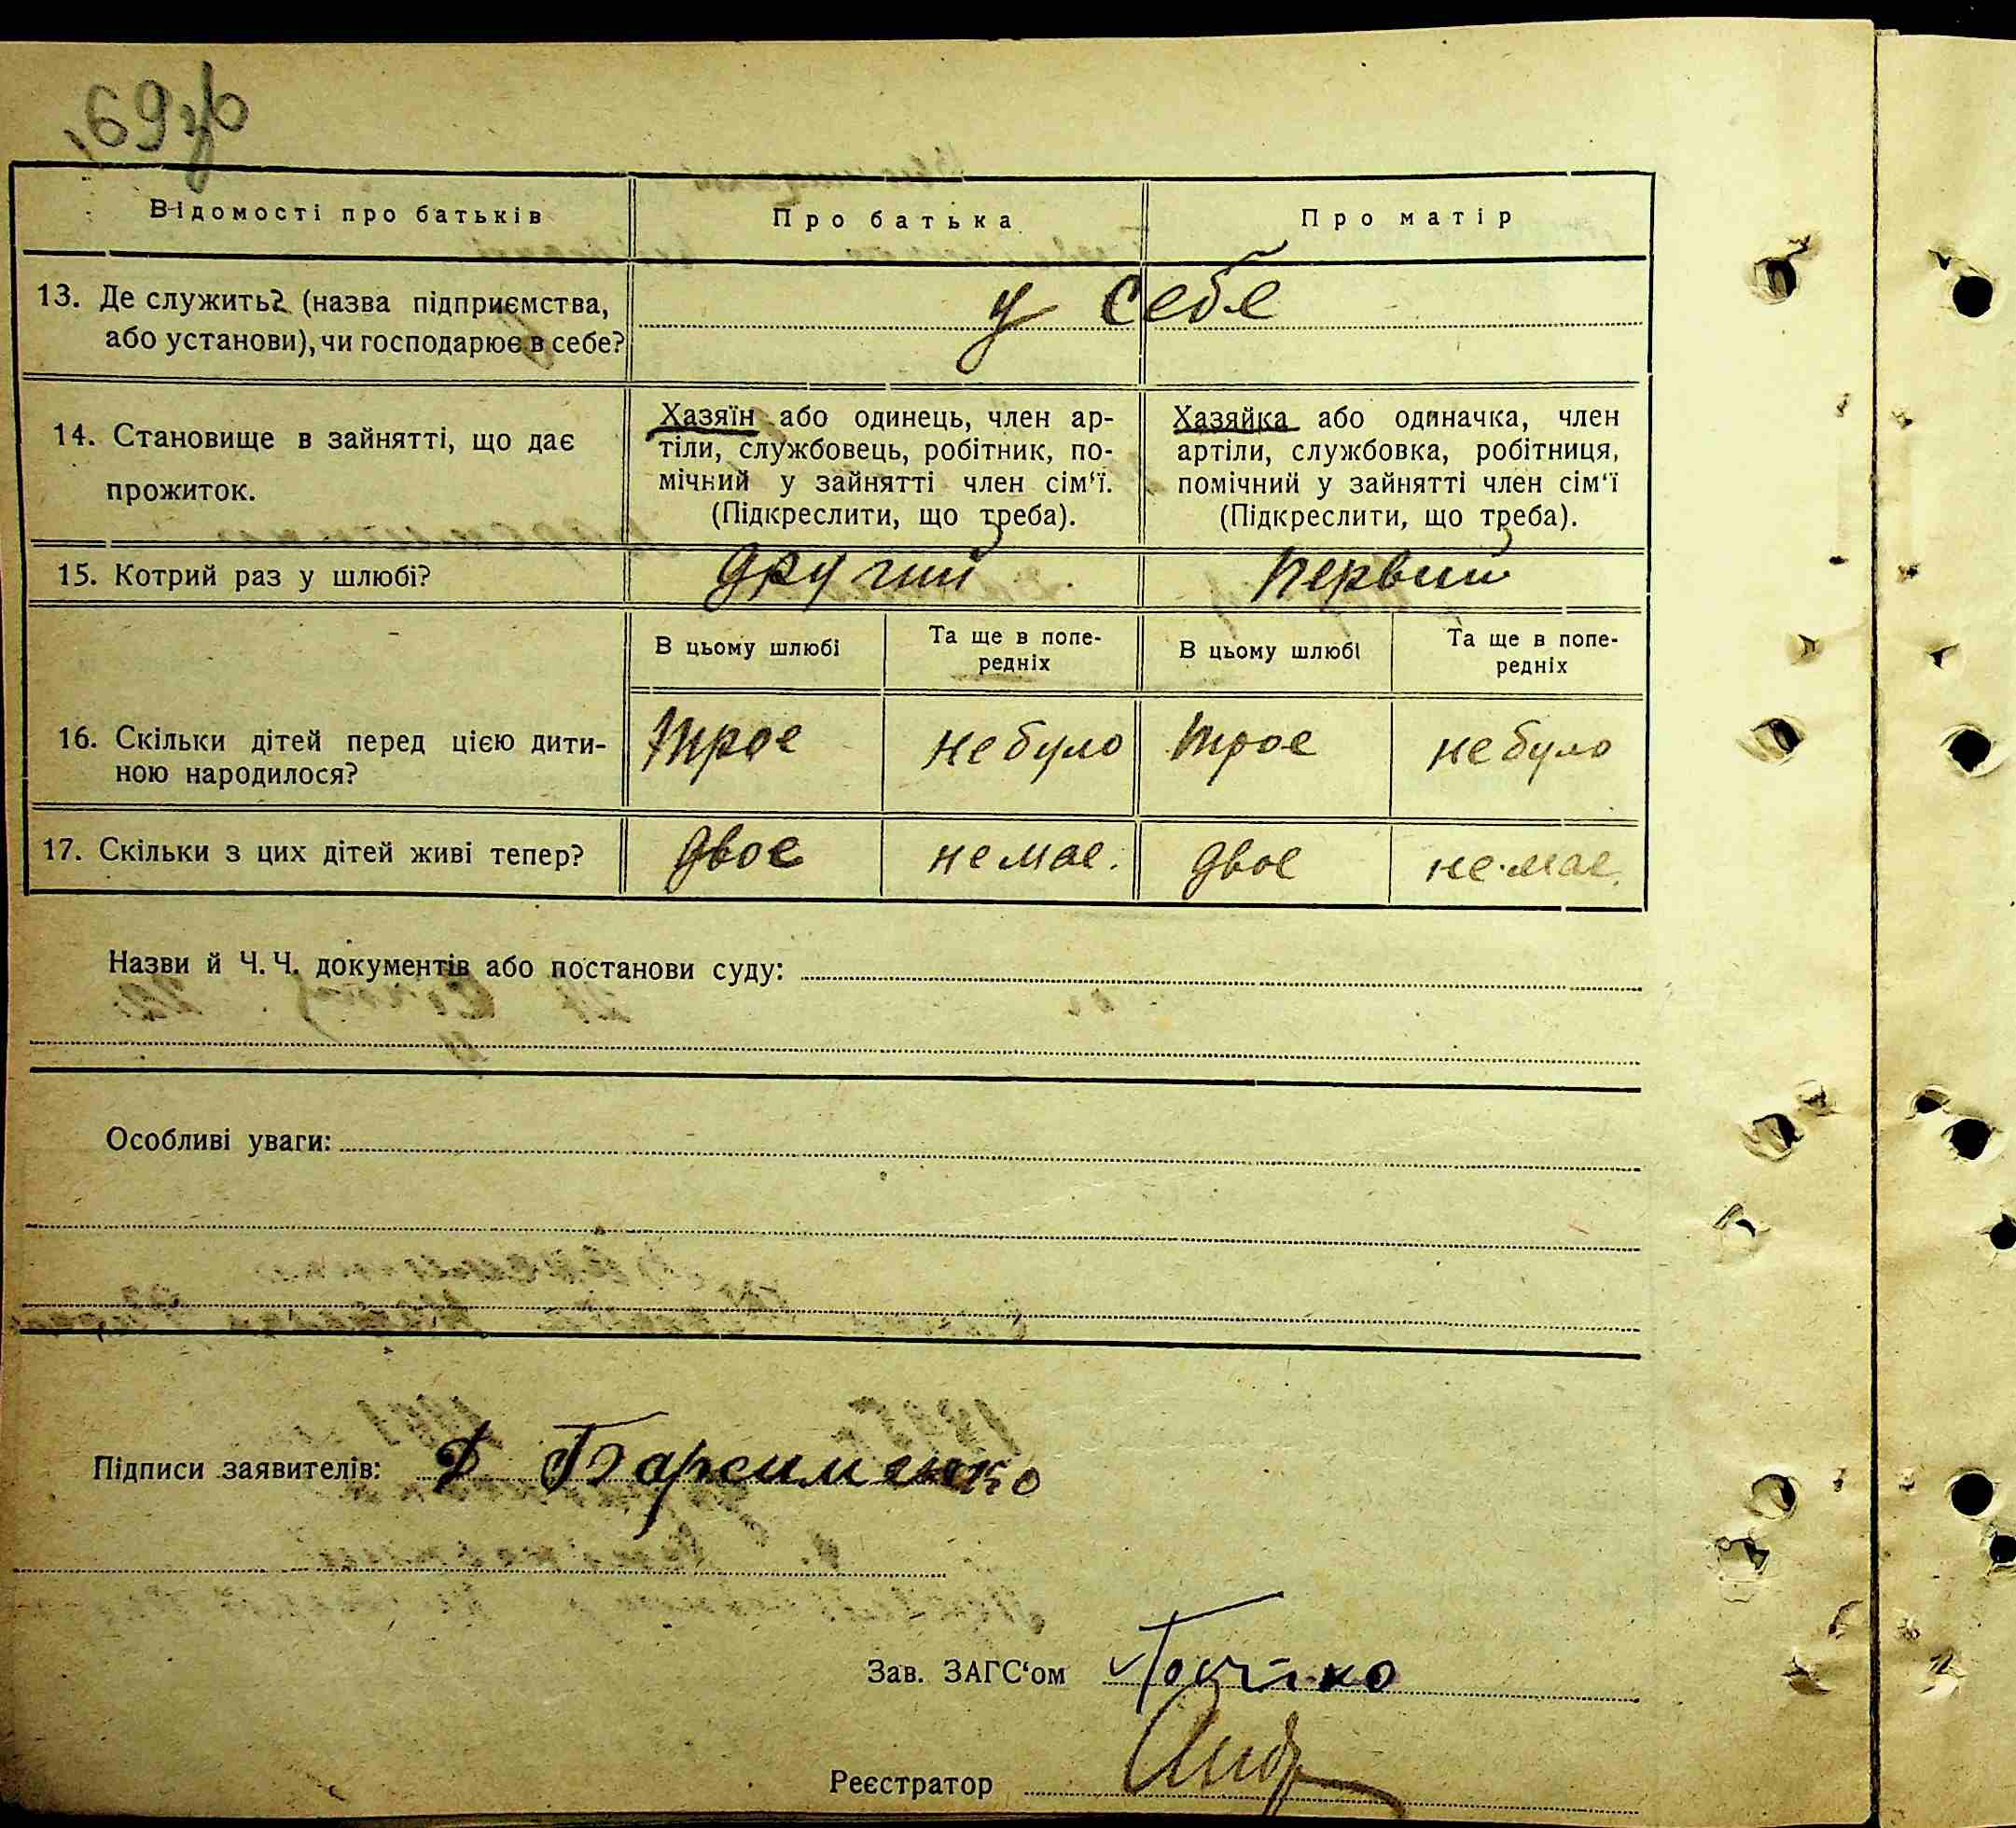 69зв
Відомості про батьків
Про батька
Про матір
13. Де служить? (назва підприємства,
або установи), чи господарює в себе?
у себе
14. Становище в зайнятті, що дає
прожиток.
Хазяїн або одинець, член ар-
тіли, службовець, робітник, по-
мічний у зайнятті член сім‘ї.
(Підкреслити, що треба).
Хазяйка або одиначка, член
артіли, службовка, робітниця,
помічний у зайнятті член сім‘ї
(Підкреслити, що треба).
15. Котрий раз у шлюбі?
другий
первий
В цьому шлюбі
Та ще в попе-
редніх
В цьому шлюбі
Та ще в попе-
редніх
16. Скільки дітей перед цією дити-
ною народилося?
трое
не було
трое
не було
17. Скільки з цих дітей живі тепер?
двое
не мае.
двое
не мае.
Назви й Ч. Ч. документів або постанови суду:
Особливі уваги:
Підписи заявителів:
Зав. ЗАГС‘ом
Реєстратор